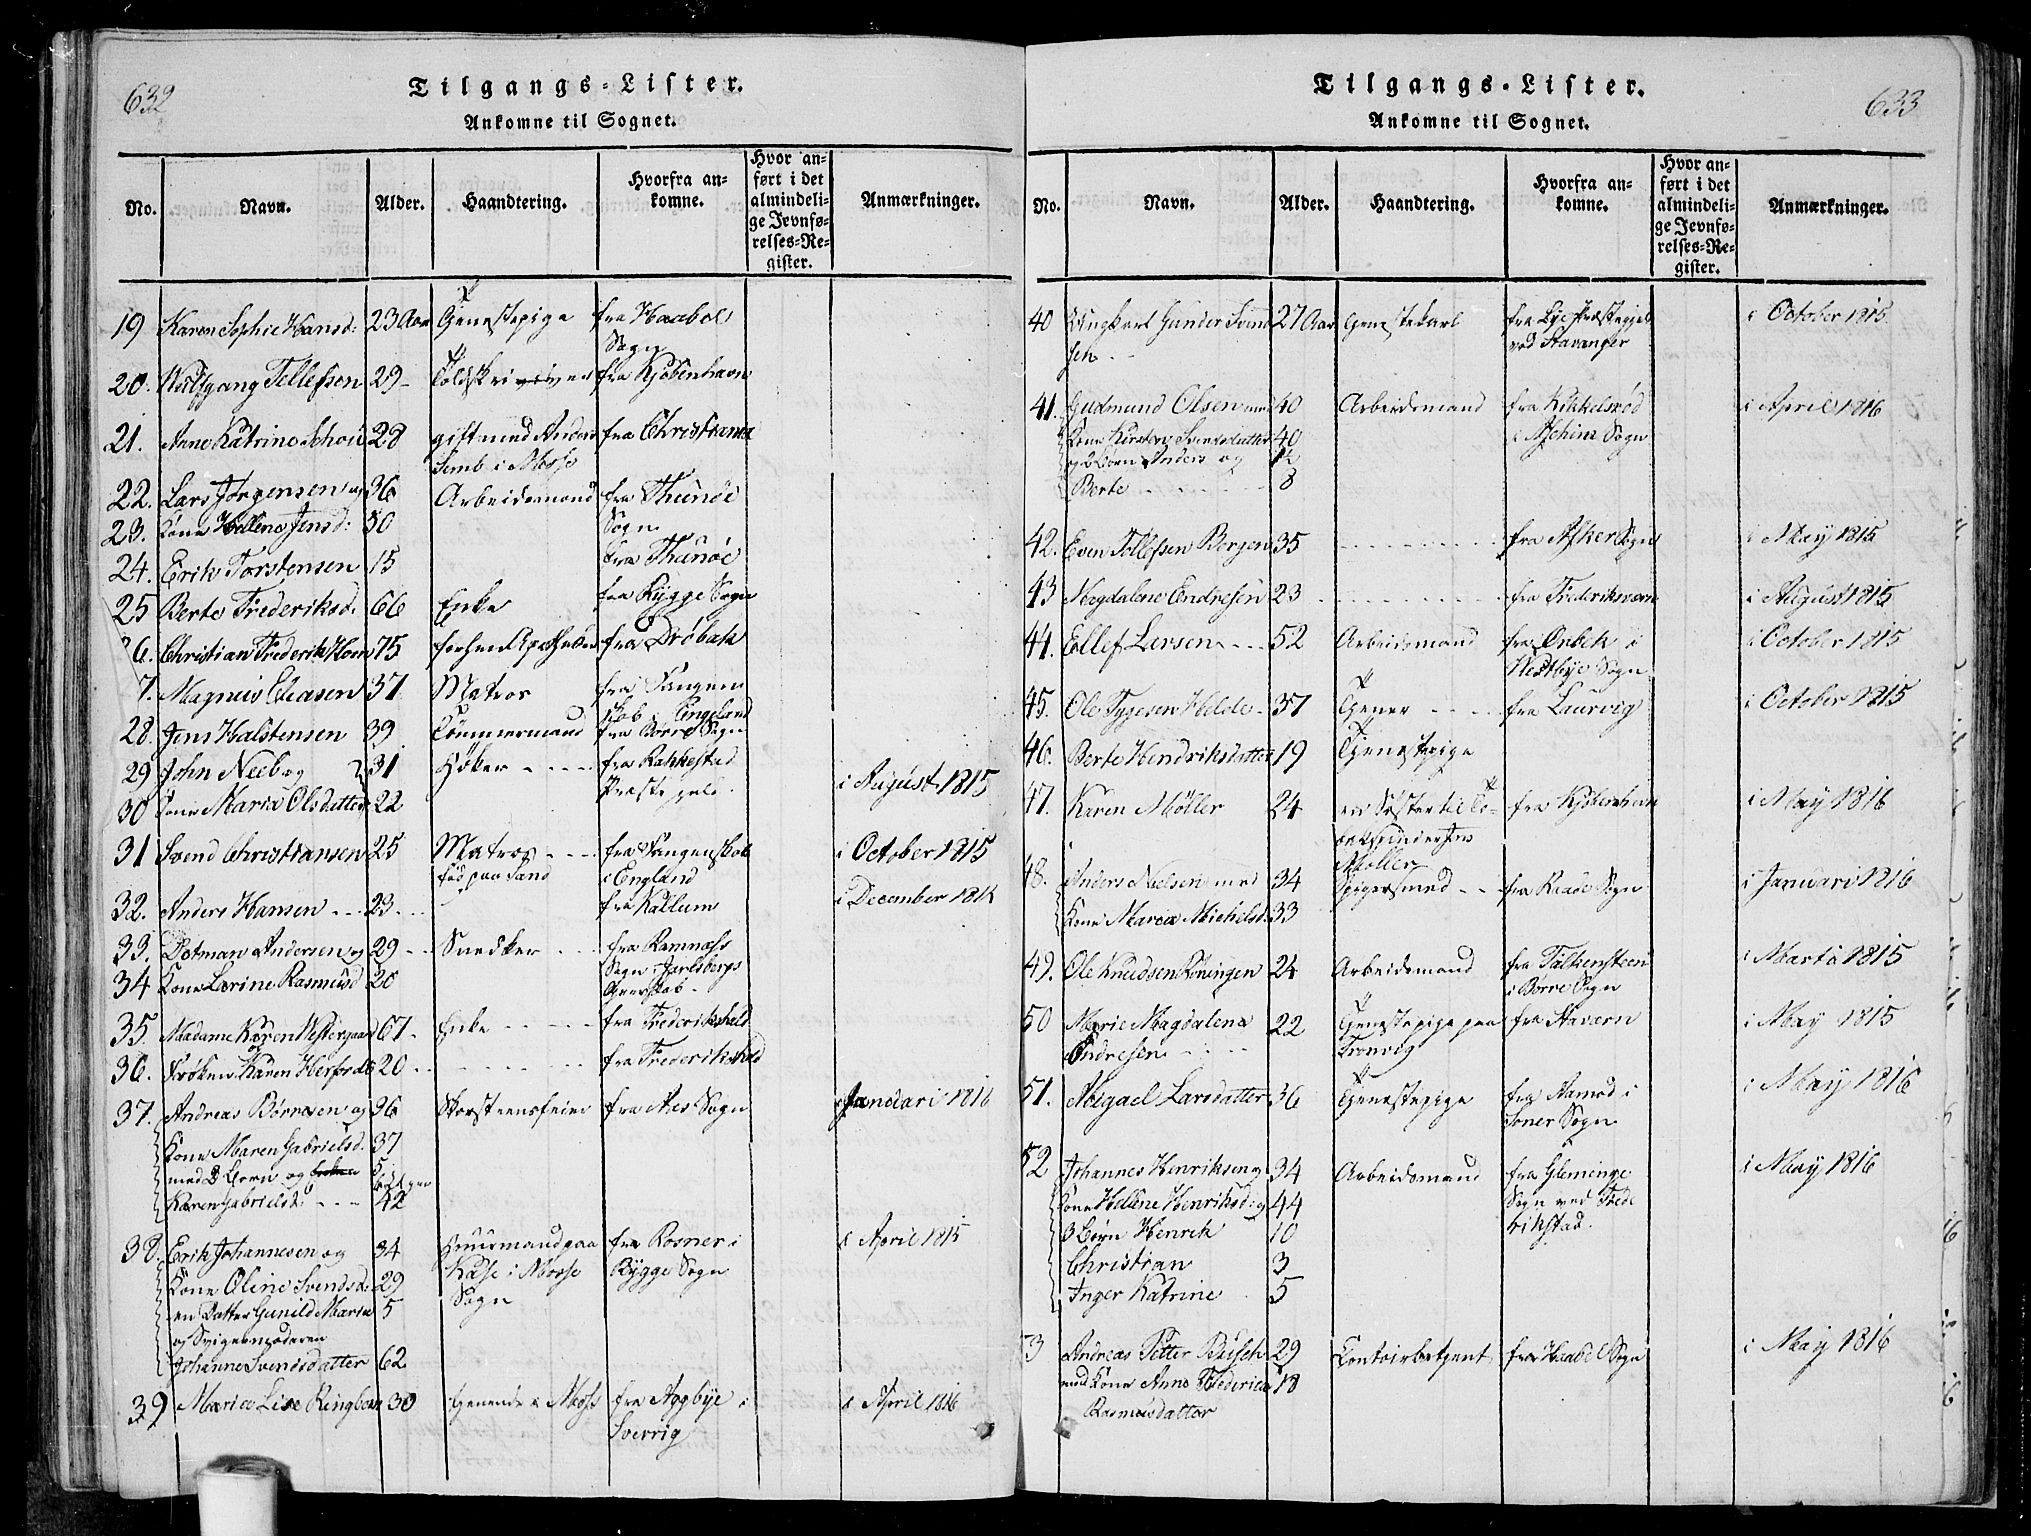 632
Tilgangs-Lister.
Ankomne til Sognet.
No. Navn. Alder. Haandtering. Hvorfra ankomne. Hvor anført i det almindelige Jevnførelses-Register. Anmærkninger.
19 Karen Sophie Hansd: 23 Aar Tjenestepige fra Haabøl
Sogn
20. Wulfgang Tellefsen 29- Toldskriver fra Kjøbenhavn
21. Anne Katrine 28 gift med Anders fra Christiania
Semb i Mosse
22. Lars Jørgensen og 36 Arbeidsmand fra Thunøe
23. Kone Hellene Jensd: 50 Sogn
24. Erik Torstensen 15 fra Thunøe
25 Berte Frederiksd. 66 Enke fra Rygge Sogn
26. Christian Frederik Hoen 75 forhen Apotheker fra Drøbak
7. Magnus 37 Matros fra Fangen
skab i Engeland
28. Jens Halstensen 39 Tømmermand fra Borre Sogn
29 John Neeb og 31 Høker - - - - fra Rakkestad
30 Kone Maria Olsdatter 22 Præstegield. i August 1815
31 Svend Christiansen 25 Matros - - - fra Fangenskab i October 1815
fød paa Sand i England
32. Anders Hansen - - - 23 - - - fra Kallum i December 1814
33. Detman Andersen og 29 - - Snedker - - - fra Ramnæss
34 Kone Larine Rasmusd 20 Sogn Jarlsbergs
Grevskab -
35. Madame Karen Westergaard 67- Enke - - - - - fra Frederikshald
36. Frøken Karen Herford 20 - - - - - - - fra Frederikshald
37. Andreas Børresen og 36 Skorsteensfeier fra Aas Sogn i Januari 1816
Kone Maren Gabrielsd. 37
med 2 Børn og 5
Karen Gabrielsd: - - - 42
38. Erik Johannesen og 34 Huusmand paa fra Rosner i i April 1815
Kone Oline Svendsd: 29 Kase i Mosse Rygge Sogn
en Datter Gunild Maria 5 Sogn
og Svigermoderen
Johanne Svendsdatter 62
39 Maria Lise Ringborn 30 tjenende i Moss fra Aggbye i i April 1816
Sverrig
633
Tilgangs-Lister.
Ankomne til Sognet.
No. Navn. Alder. Haandtering. Hvorfra ankomne. Hvor anført i det almindelige Jevnførelses-Register. Anmærkninger.
40 Ungkarl Gunder Svend 27 Aar Tjenestekarl fra Lye Præstegjeld i October 1815
sen - - ved Stavanger
41. Gudmund Olsen med 40 Arbeidsmand fra Kikkelsrød i April 1816
Kone Kirsten Svendsdatter 40 i Aschim Sogn
og 2 Børn Anders og 12
Berte - - - - - - 8
42. Even Tollefsen Borgen 35 - - - - - - - - fra Asker Sogn i May 1815
43 Magdalene Endresen 23 - - - - - - - - fra Frederiksværn i August 1815
44. Ellef Larsen - - - 52 Arbeidsmand fra Ørbek i i October 1815
Westbye Sogn
45. Ole Tygesen Helde - 37 Tjener - - - fra Laurvig i October 1815
46. Berte Hendriksdatter 19 Tjenestepige
47. Karen Møller 24 en Søster til fra Kjøbenhavn i May 1816
Møller
48. Anders Nielsen med 34 Spigersmed - - fra Raade Sogn i Januari 1816
Kone Maria Michelsd. 33
49. Ole Knudsen Røningen 24 Arbeidsmand fra Falkensteen i Marts 1815
i Borre Sogn
50 Marie Magdalena 22 Tjenestepige paa fra Stavern i May 1815
Endresen - - - - Tronvig
51. Abigael Larsdatter 36 Tjenestepige fra Aamod i i May 1816
Soner Sogn
52 Johannes Henriksen og 34 Arbeidsmand fra Gleminge i May 1816
Kone Hellene Henriksd: og 44 Sogn ved Frede
3 Børn Henrik 10 rikstad.
Christian 3
Inger Katrine 5
3 Andreas Petter Busch 29 Contoirbetjent fra Haabel Sogn i May 1816
med Kone Anne Frederica 18
Rasmusdatter